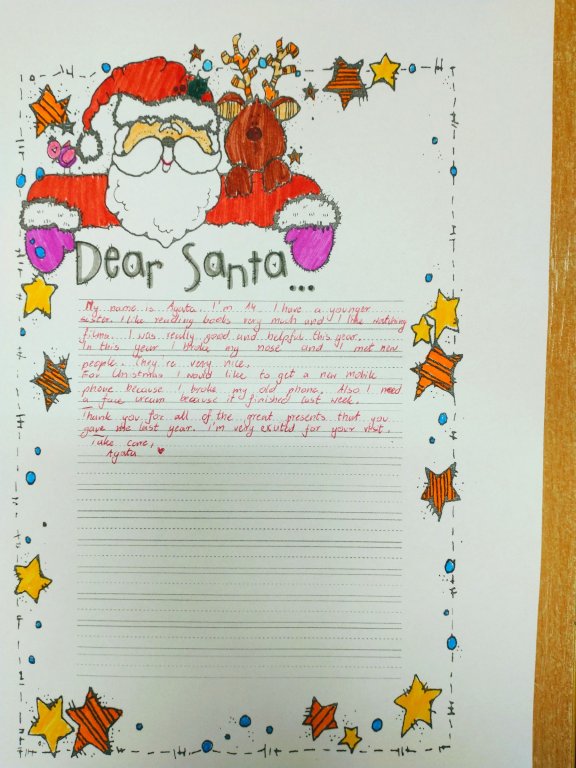 Dear Santa...
My name is Agata. I'm 14. I have a younger
sister. I like reading books very much and I like watching
films. I was really good and helpful this year.
In this year I broke my nose and I met new
people. They're very nice.
For Christmas I would like to get a new mobile
phone because I broke my old phone. Also I need
a face cream because it finished last week.
Thank you for all of the great presents that you
gave me last year. I'm very exited for your visit.
Take care,
Agata ♥